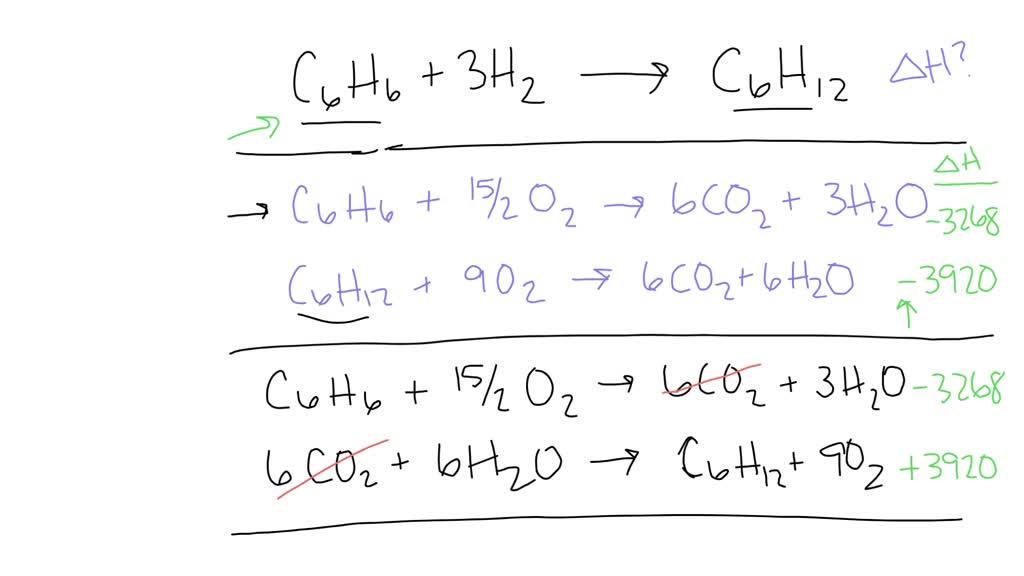 C₆H₆ + 3H₂ ⟶ C₆H₁₂ ΔH?
ΔH
→ C₆H₆ + 15/2 O₂ → 6CO₂ + 3H₂O -3268
C₆H₁₂ + 9O₂ → 6CO₂ + 6H₂O -3920
C₆H₆ + 15/2 O₂ → 6CO₂ + 3H₂O -3268
6CO₂ + 6H₂O → C₆H₁₂ + 9O₂ +3920